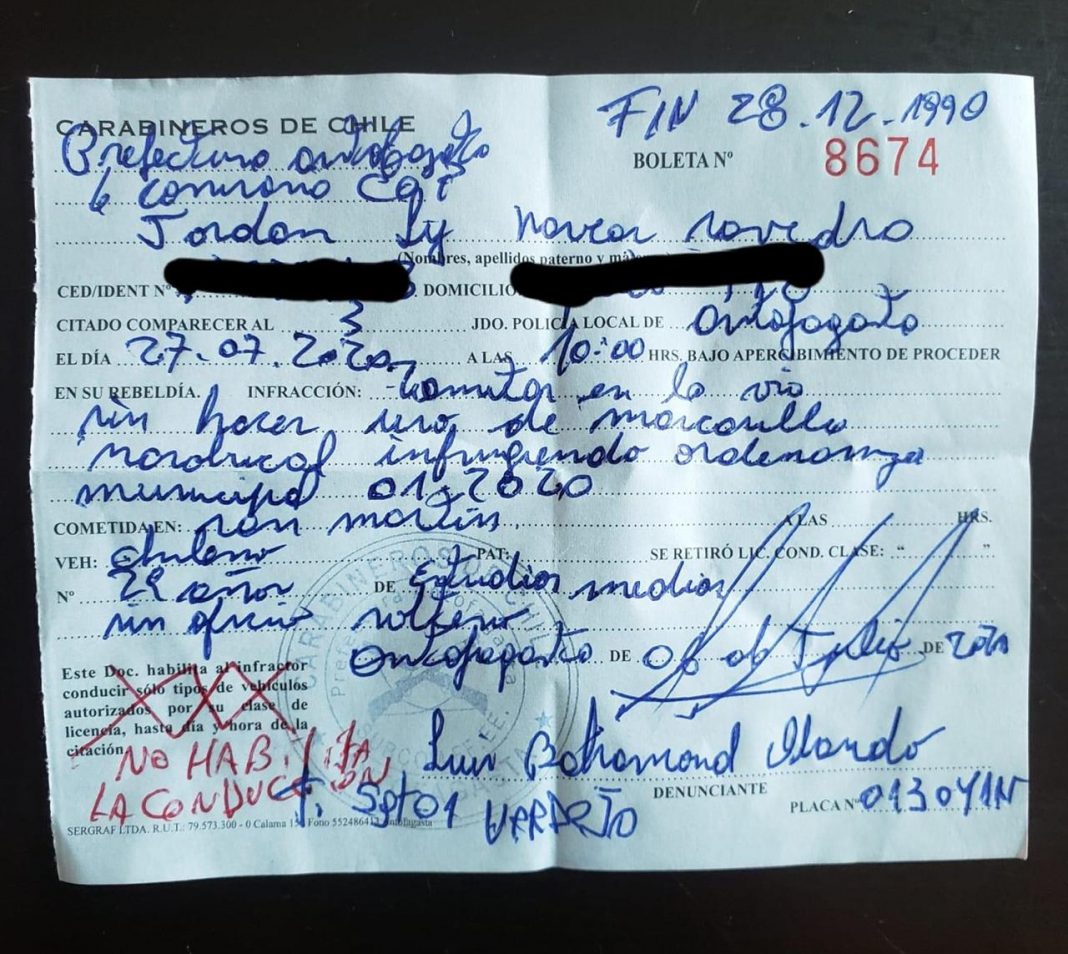 FIN 28.12.1990
CARABINEROS DE CHILE
BOLETA Nº 8674
Prefectura antofagasta
Jordan navea saavedra
(Nombres, apellidos paterno y
CED/IDENT Nº DOMICILIO
CITADO COMPARECER AL 3 JDO. POLICIA LOCAL DE Antofagasta
EL DÍA 27.07.2020 A LAS 10:00 HRS. BAJO APERCIBIMIENTO DE PROCEDER
EN SU REBELDÍA. INFRACCIÓN: transitar en la via
sin hacer uso de mascarilla
infringiendo ordenanza
municipal 01-2020
COMETIDA EN: san martin A LAS HRS.
VEH: chileno PAT: SE RETIRÓ LIC. COND. CLASE: “ ”
Nº 29 años DE Estudios medios
sin oficio soltero
Antofagasta DE 06 de Julio DE 2020
Este Doc. habilita al infractor
conducir sólo tipos de vehículos
autorizados por su clase de
licencia, hasta día y hora de la
citación
NO HABILITA
LA CONDUCCION
Luis
DENUNCIANTE
PLACA Nº 013041N
SERGRAF LTDA. R.U.T.: 79.573.300 - 0 Calama Fono Antofagasta
CARABINEROS DE CHILE